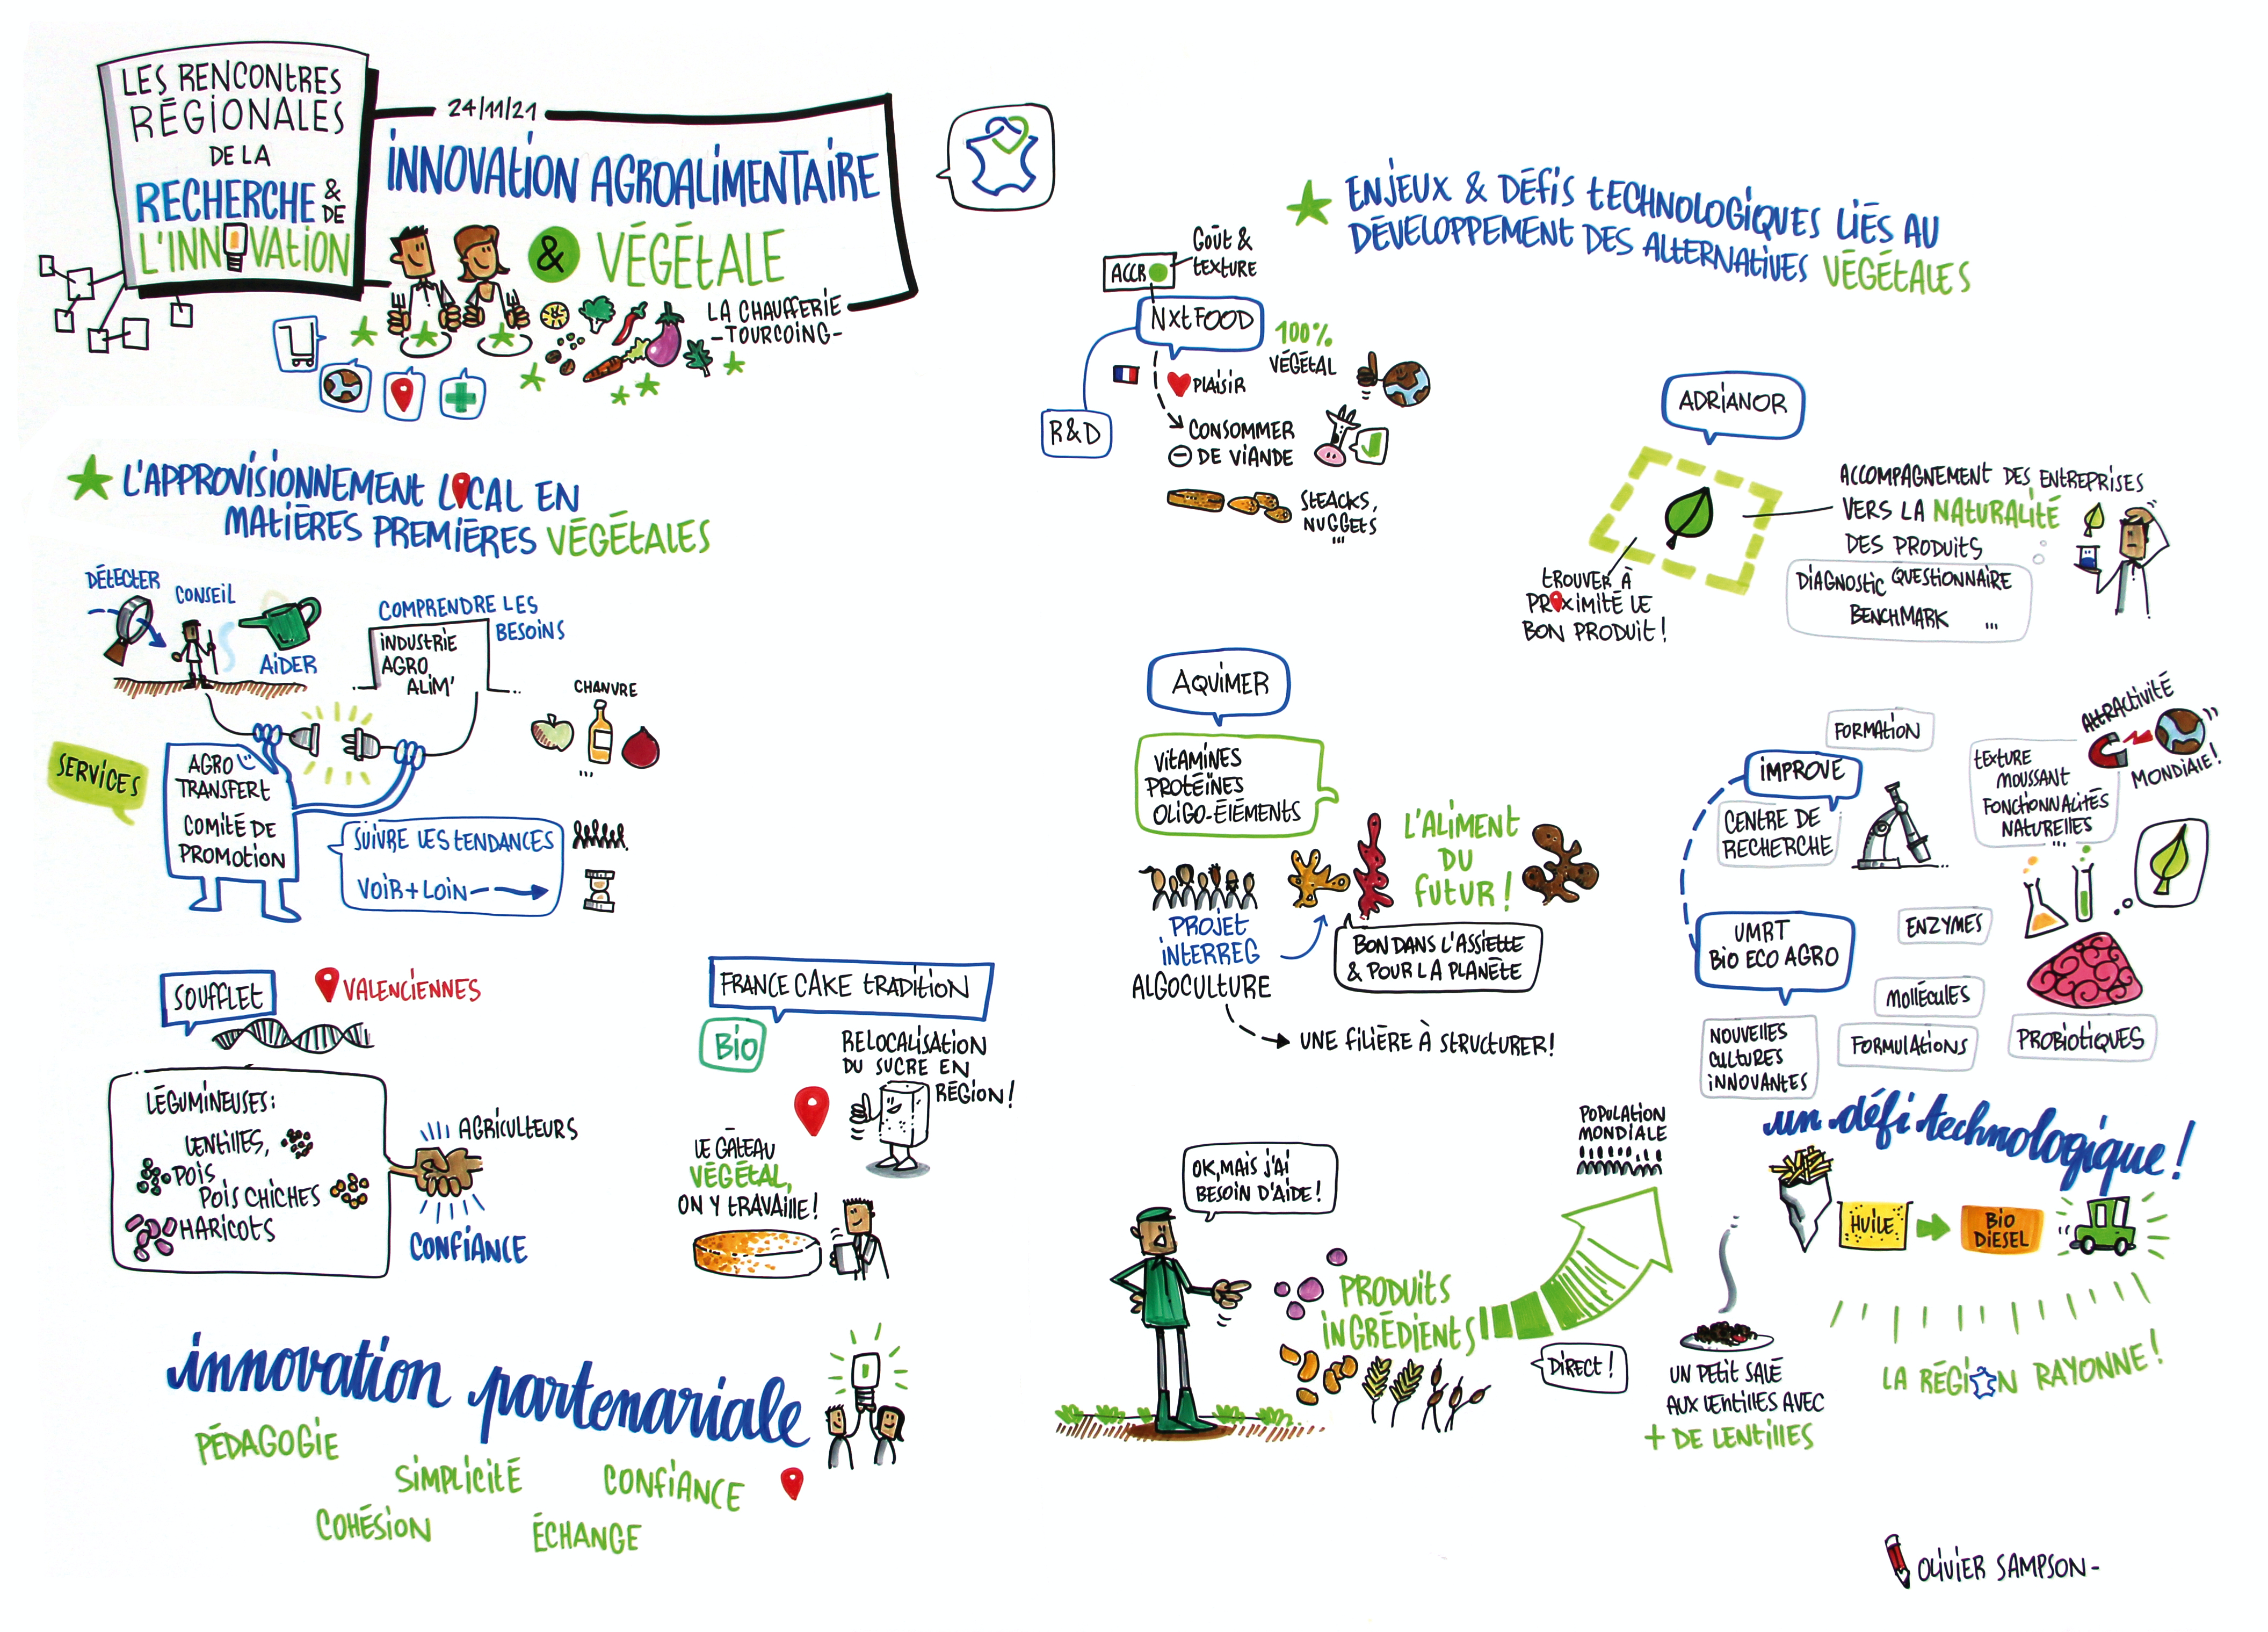 LES RENCONTRES
RÉGIONALES
DE LA
RECHERCHE &
DE
L'INNOVATION
24/11/21
INNOVATION AGROALIMENTAIRE
& VÉGÉTALE
LA CHAUFFERIE
-TOURCOING-
L'APPROVISIONNEMENT LOCAL EN
MATIÈRES PREMIÈRES VÉGÉTALES
DÉTECTER
CONSEIL
AIDER
COMPRENDRE LES
BESOINS
INDUSTRIE
AGRO
ALIM'
CHANVRE
...
SERVICES
AGRO
TRANSFERT
COMITÉ DE
PROMOTION
SUIVRE LES TENDANCES
VOIR + LOIN
SOUFFLET
VALENCIENNES
LÉGUMINEUSES:
LENTILLES,
POIS
POIS CHICHES
HARICOTS
AGRICULTEURS
CONFIANCE
FRANCE CAKE TRADITION
BIO
RELOCALISATION
DU SUCRE EN
RÉGION!
LE GÂTEAU
VÉGÉTAL,
ON Y TRAVAILLE!
innovation partenariale
PÉDAGOGIE
SIMPLICITÉ
CONFIANCE
COHÉSION
ÉCHANGE
ENJEUX & DÉFIS TECHNOLOGIQUES LIÉS AU
DÉVELOPPEMENT DES ALTERNATIVES VÉGÉTALES
GOÛT &
TEXTURE
ACCRO
NXTFOOD
100%
VÉGÉTAL
PLAISIR
R&D
CONSOMMER
- DE VIANDE
STEACKS,
NUGGETS
...
ADRIANOR
ACCOMPAGNEMENT DES ENTREPRISES
VERS LA NATURALITÉ
DES PRODUITS
DIAGNOSTIC QUESTIONNAIRE
BENCHMARK ...
TROUVER À
PROXIMITÉ LE
BON PRODUIT!
AQUIMER
VITAMINES
PROTÉÏNES
OLIGO-ÉLÉMENTS
L'ALIMENT
DU
FUTUR!
PROJET
INTERREG
ALGOCULTURE
BON DANS L'ASSIETTE
& POUR LA PLANÈTE
UNE FILIÈRE À STRUCTURER!
FORMATION
IMPROVE
CENTRE DE
RECHERCHE
TEXTURE
MOUSSANT
FONCTIONNALITÉS
NATURELLES
...
ATTRACTIVITÉ
MONDIALE!
UMRT
BIO ECO AGRO
ENZYMES
MOLLÉCULES
FORMULATIONS
PROBIOTIQUES
NOUVELLES
CULTURES
INNOVANTES
un défi technologique!
HUILE
BIO
DIESEL
LA RÉGION RAYONNE!
OK, MAIS J'AI
BESOIN D'AIDE!
PRODUITS
INGRÉDIENTS
POPULATION
MONDIALE
DIRECT!
UN PETIT SALÉ
AUX LENTILLES AVEC
+ DE LENTILLES
OLIVIER SAMPSON-